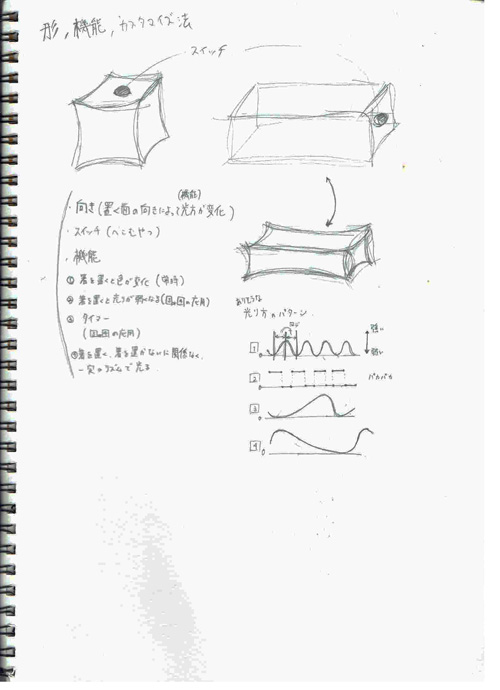 形, 機能, カスタマイズ法
スイッチ
・向き(置く面の向きによって光方が変化)
(機能)
・スイッチ(へこむやつ)
・機能
① 箸を置くと色が変化(常時)
② 箸を置くと光りが弱くなる(
の応用)
③ タイマー
(
の応用)
④ 箸を置く、箸を置かないに関係なく、
一定のリズムで光る
ありそうな
光り方のパターン
強い
弱い
1
0
2
0
パカパカ
3
0
4
0